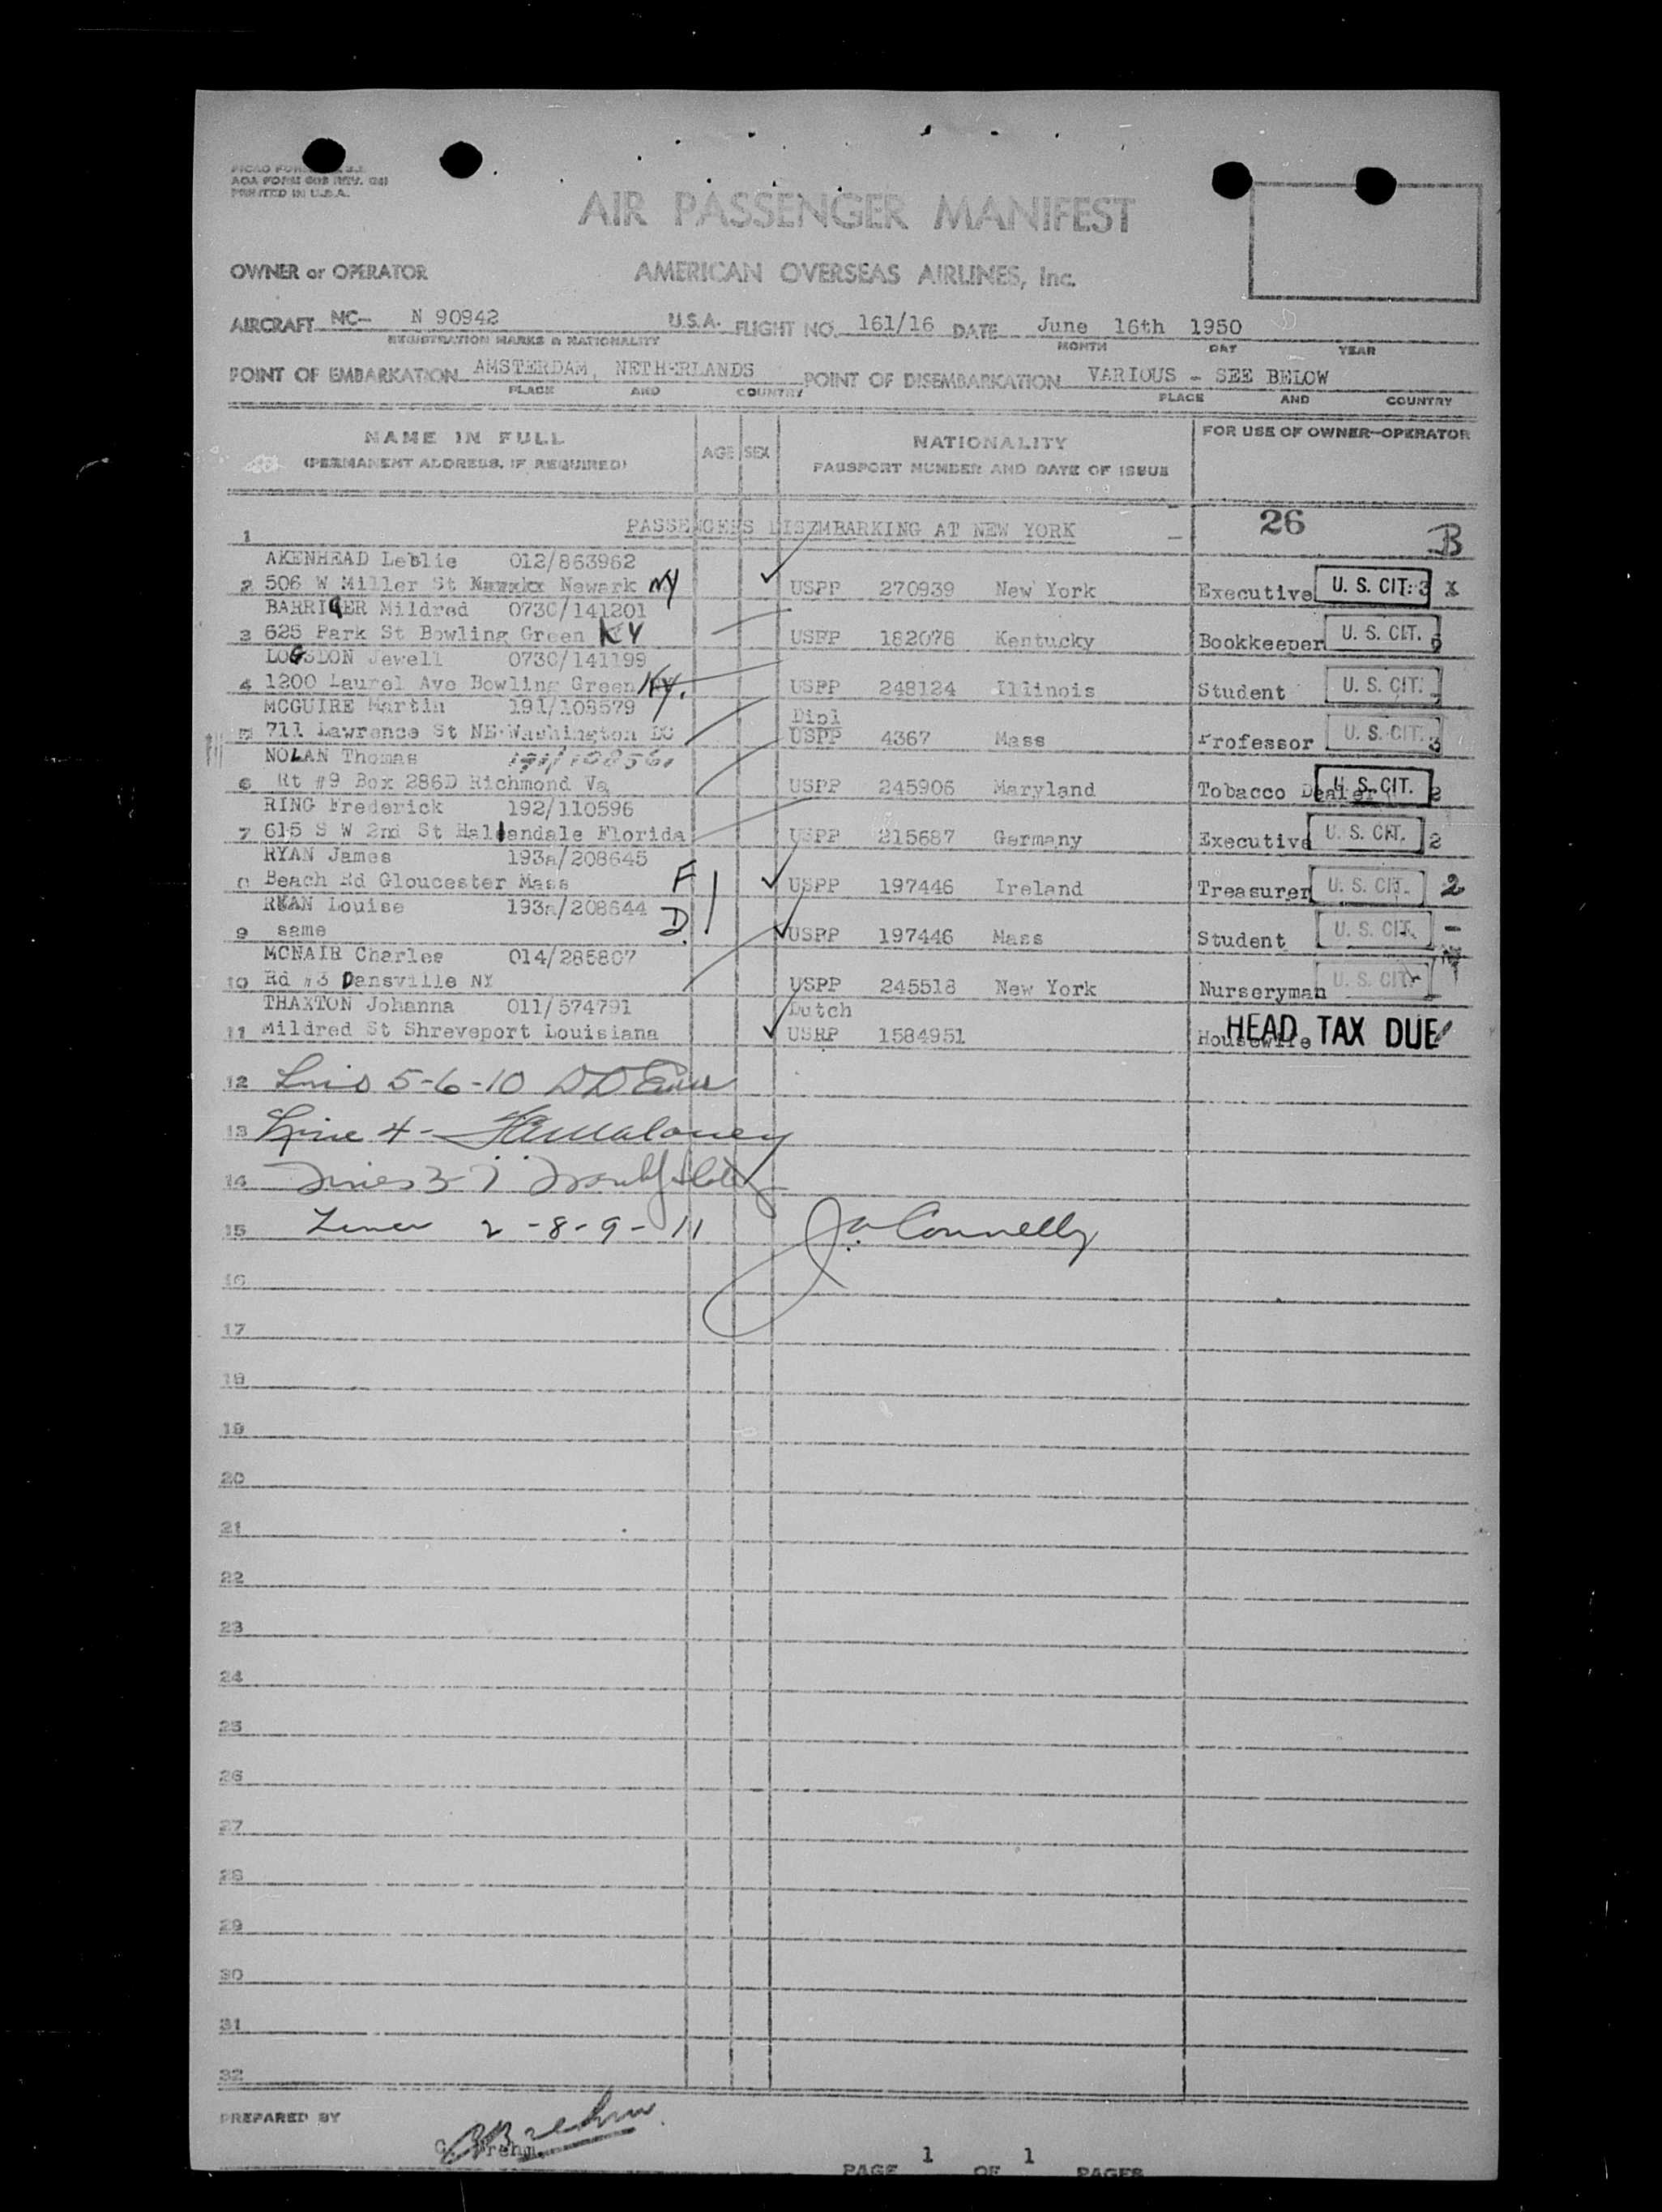 AOA FORM
PRINTED IN U.S.A.
AIR PASSENGER MANIFEST
OWNER or OPERATOR AMERICAN OVERSEAS AIRLINES, Inc.
AIRCRAFT NC- N 90942 U.S.A. FLIGHT NO. 161/16 DATE June 16th 1950
REGISTRATION MARKS & NATIONALITY MONTH DAY YEAR
POINT OF EMBARKATION AMSTERDAM, NETHERLANDS POINT OF DISEMBARKATION VARIOUS - SEE BELOW
PLACE AND COUNTRY PLACE AND COUNTRY
NAME IN FULL AGE SEX NATIONALITY FOR USE OF OWNER-OPERATOR
(PERMANENT ADDRESS, IF REQUIRED) PASSPORT NUMBER AND DATE OF ISSUE
1 PASSENGERS DISEMBARKING AT NEW YORK - 26 B
AKENHEAD Leslie 012/863962
2 506 W Miller St Newark NY USPP 270939 New York Executive U. S. CIT. 3 x
BARRIGER Mildred 073C/141201
3 625 Park St Bowling Green KY USPP 182078 Kentucky Bookkeeper U. S. CIT. 6
LOGSDON Jewell 073C/141199
4 1200 Laurel Ave Bowling Green Ky. USPP 248124 Illinois Student U. S. CIT.
MCGUIRE Martin 191/108579 Dipl
5 711 Lawrence St NE Washington DC USPP 4367 Mass Professor U. S. CIT. 3
NOLAN Thomas
6 Rt #9 Box 286D Richmond Va USPP 245906 Maryland Tobacco Dealer U. S. CIT. 2
RING Frederick 192/110596
7 615 S W 2nd St Hallendale Florida USPP 215687 Germany Executive U. S. CIT. 2
RYAN James 193a/208645
8 Beach Rd Gloucester Mass F USPP 197446 Ireland Treasurer U. S. CIT. 2
RYAN Louise 193a/208644
9 same D. USPP 197446 Mass Student U. S. CIT. -
MCNAIR Charles 014/285807
10 Rd #3 Dansville NY USPP 245518 New York Nurseryman U. S. CIT.
THAXTON Johanna 011/574791 Dutch
11 Mildred St Shreveport Louisiana USPP 1584951 Housewife HEAD TAX DUE
12 5-6-10
13 Line 4 - Maloney
14 Lines 3-7
15 Lines 2-8-9-11 J. Connelly
16
17
18
19
20
21
22
23
24
25
26
27
28
29
30
31
32
PREPARED BY
C. Brehm
PAGE 1 OF 1 PAGES